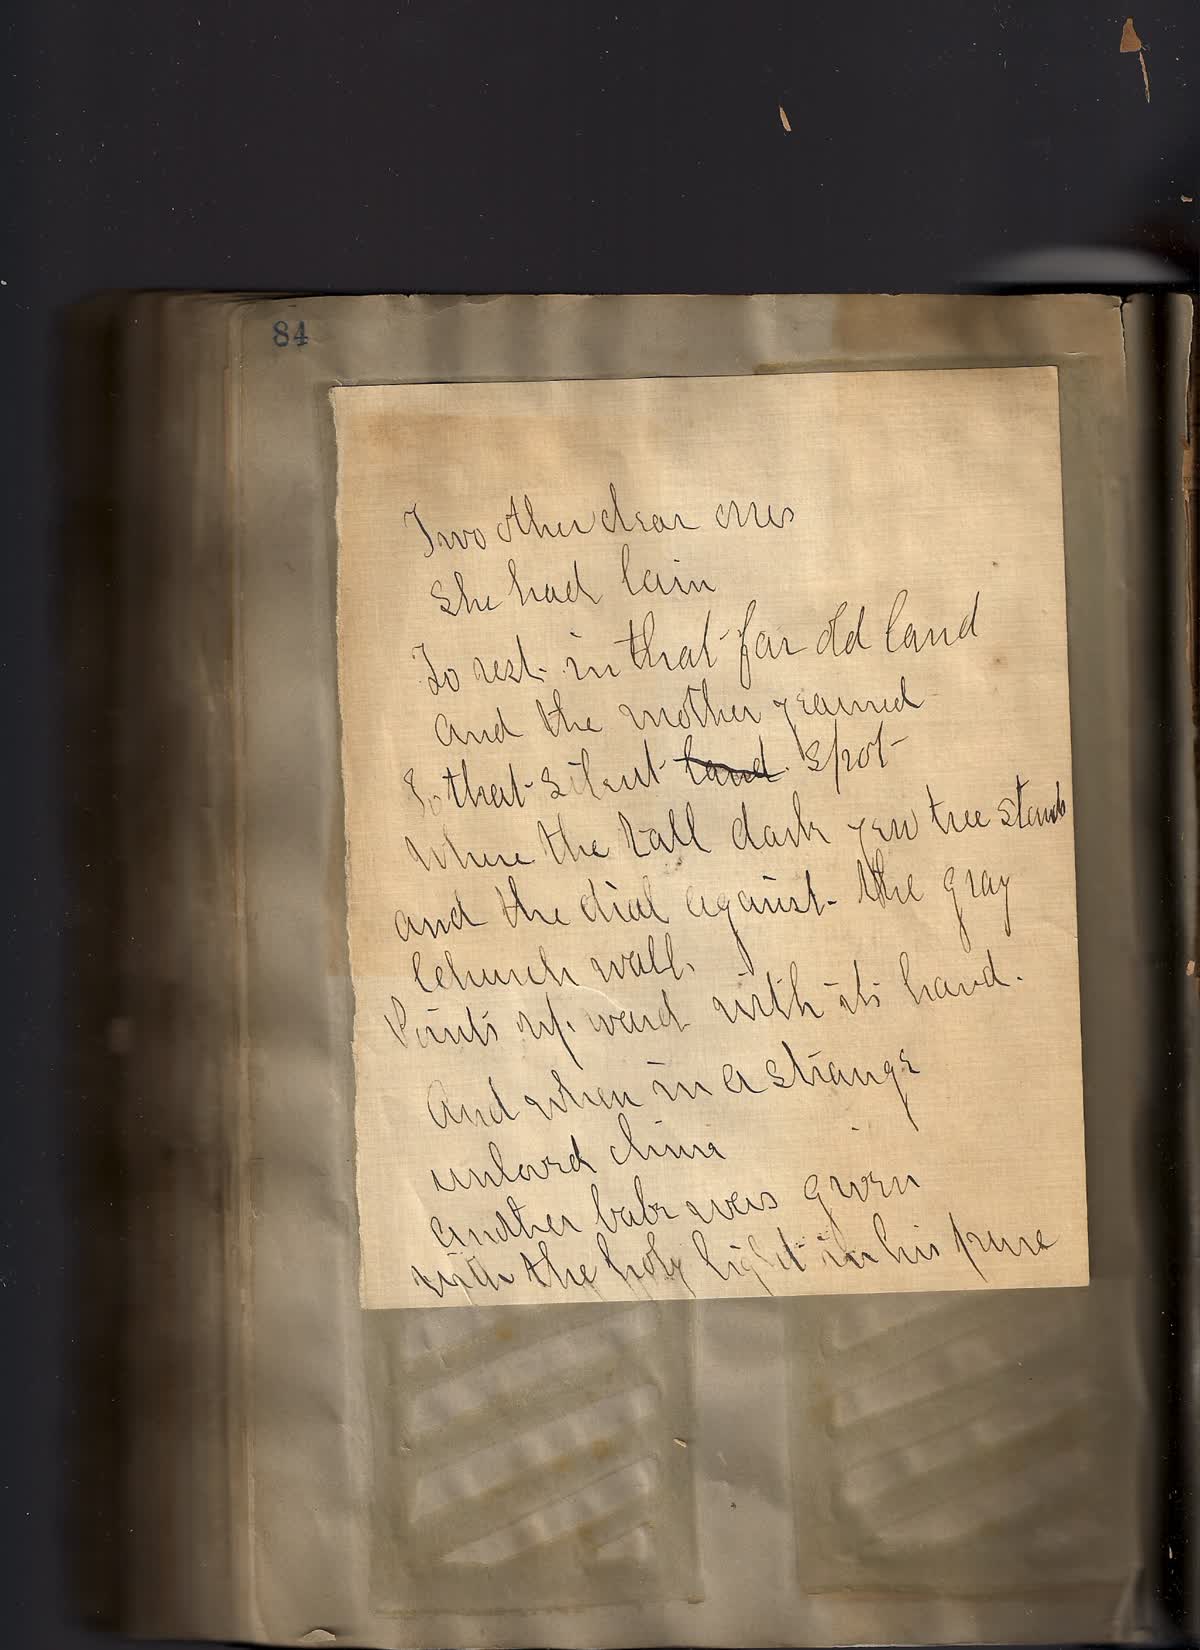 84
Two other dear ones
She had lain
To rest in that far old land
And the mother yearned
To that silent land spot
Where the tall dark yew tree stands
and the dial against the gray
Church wall.
Points up ward with its hand.
And when in a strange
unloved clime
another babe was given
with the holy light in his pure